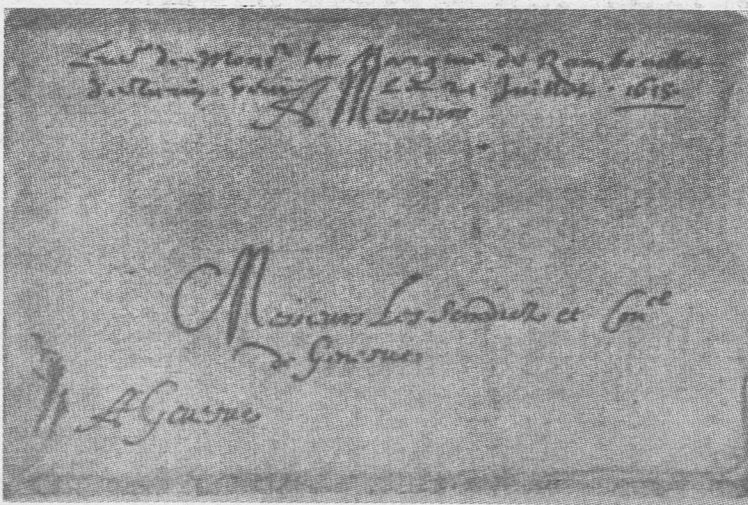 de Monsr le Marquis de Rambouillet
de Turin Le 21 Juillet 1615
A Messieurs
Messieurs Les Sindicz et Conel
de Geneue
A Geneue